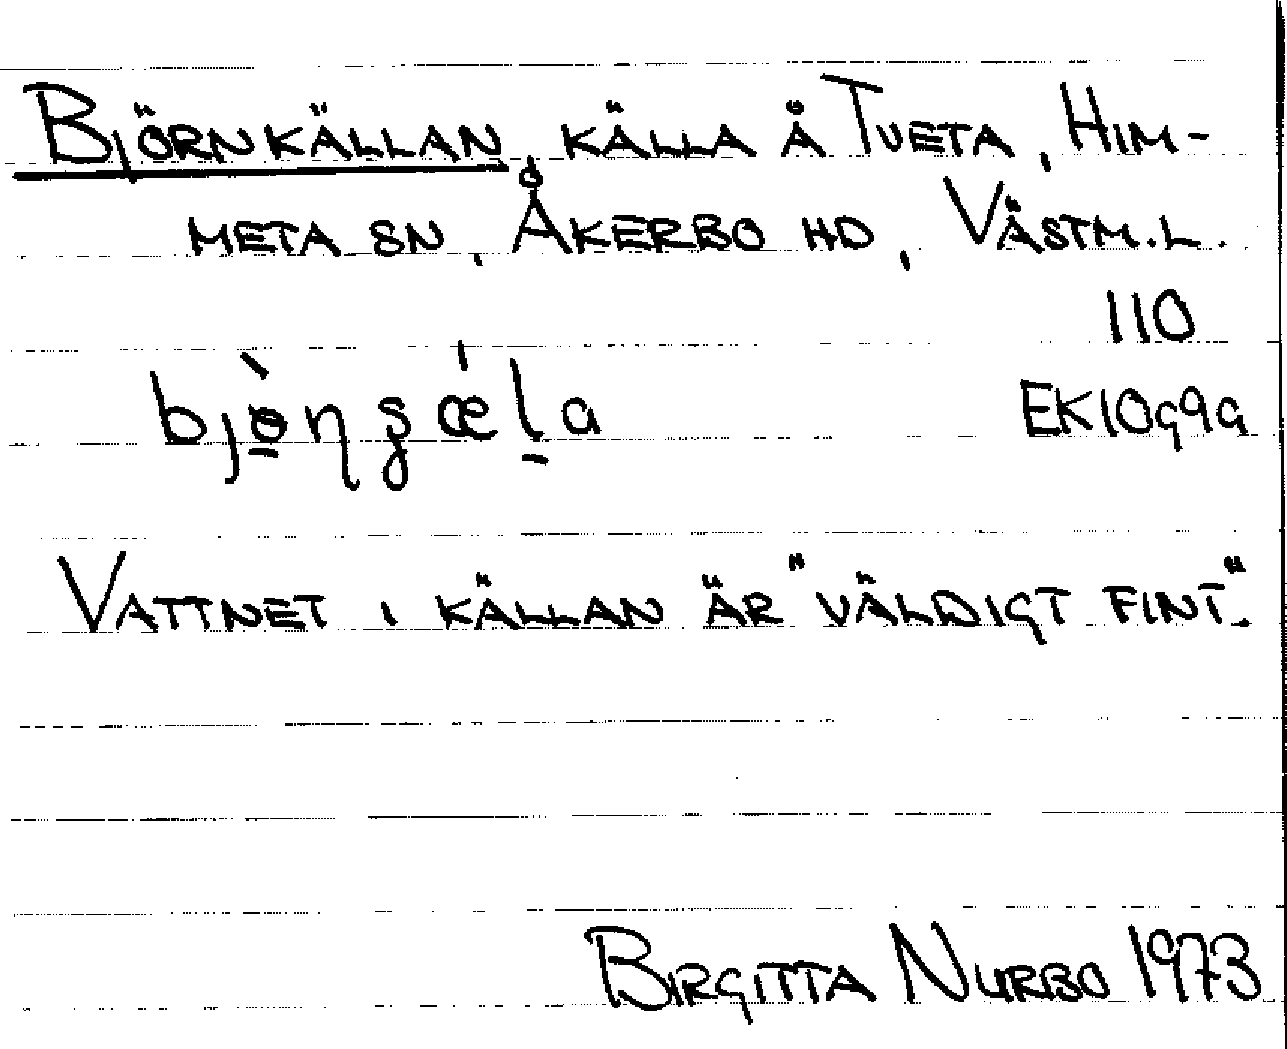 BJÖRNKÄLLAN, KÄLLA Å TUETA, HIM-
META SN, ÅKERBO HD, VÄSTM.L.
110
EK10g9a
VATTNET I KÄLLAN ÄR "VÄLDIGT FINT".
BIRGITTA NURBO 1973